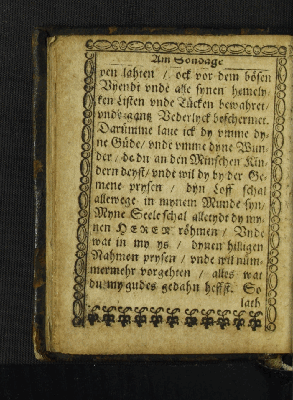 Am Sondage
ven lahten / ock vor dem bösen
Vyendt vnde alle synen hemely-
ken Listen vnde Tücken bewahret /
vnde gantz Vederlyck beschermet.
Darümme laue ick dy vmme dy-
ne Güde / vnde vmme dyne Wun-
der / de du an den Minschen Kin-
dern deyst / vnde wil dy by der Ge-
mene prysen / dyn Loff schal
allewege in mynem Munde syn /
Myne Seele schal alletydt dy my-
nen HEREN röhmen / Vnde
wat in my ys / dynen hilligen
Nahmen prysen / vnde wil nüm-
mermehr vorgehten / alles wat
du my gudes gedahn heffst. So
lath